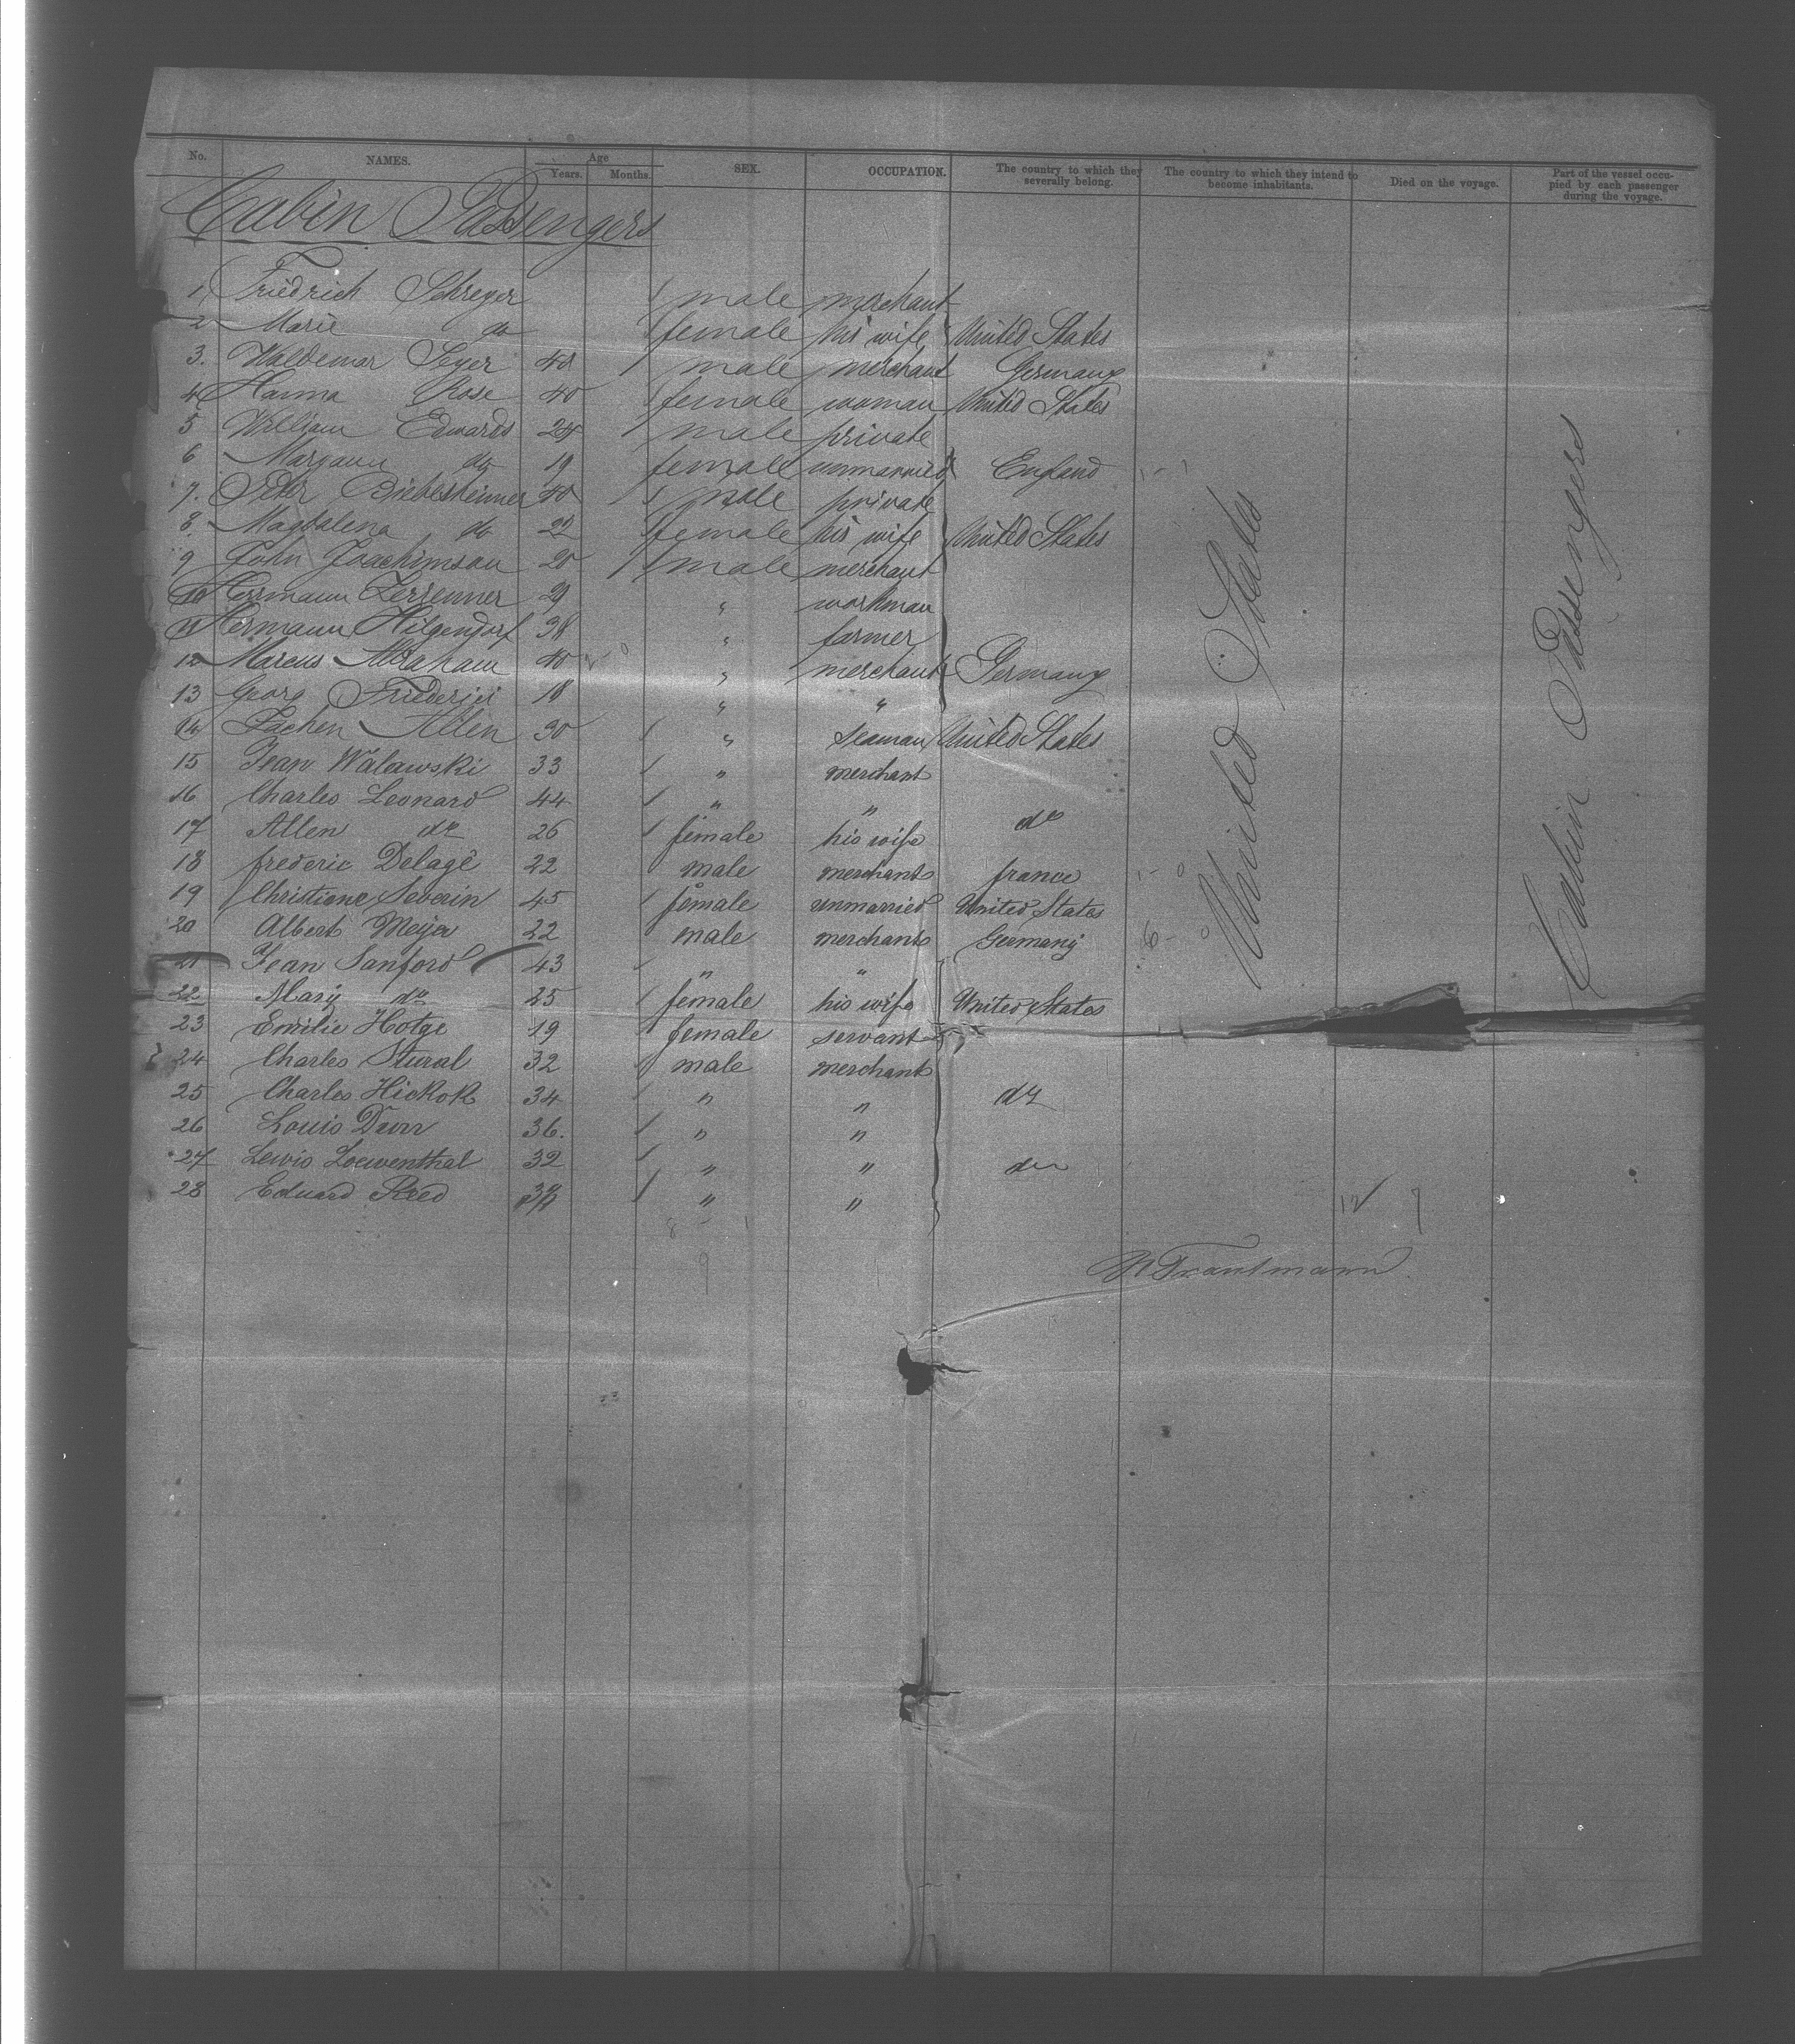 No. NAMES. Age Years. Months. SEX. OCCUPATION. The country to which they severally belong. The country to which they intend to become inhabitants. Died on the voyage. Part of the vessel occupied by each passenger during the voyage.
Cabin Passengers
1 Friedrich Schreyer male merchant
2 Marie do female his wife United States
3. Waldemar Seyer 48 male merchant Germany
4 Hanna Rose 40 female woman United States
5 William Edwards 24 male private
6 do 19 female unmarried England
7. Peter 40 male private
8. Magdalena do 22 female his wife United States
9 John Joachimson 20 male merchant
10 Herrmann Zerrenner 29 " workman
11 Hermann Hilgendorf 38 " farmer
12 Marcus Abraham 40 " merchant Germany
13 Georg Friederici 18 " "
14 Allen 30 " seaman United States
15 Jean Walawski 33 " merchant
16 Charles Leonard 44 " "
17 Allen do 26 female his wife do
18 frederic Delage 22 male merchant france
19 Christiane Severin 45 female unmarried United States
20 Albert Meijer 22 male merchant Germany
21 Jean Sanford 43 " "
22 Mary do 25 female his wife United States
23 Emilie Hotge 19 female servant
24 Charles Stural 32 male merchant
25 Charles Hickok 34 " " do
26 Louis Durr 36. " "
27 Lewis Loewenthal 32 " " do
28 Eduard Reed " "
United States
Cabin Passengers
Trautmann